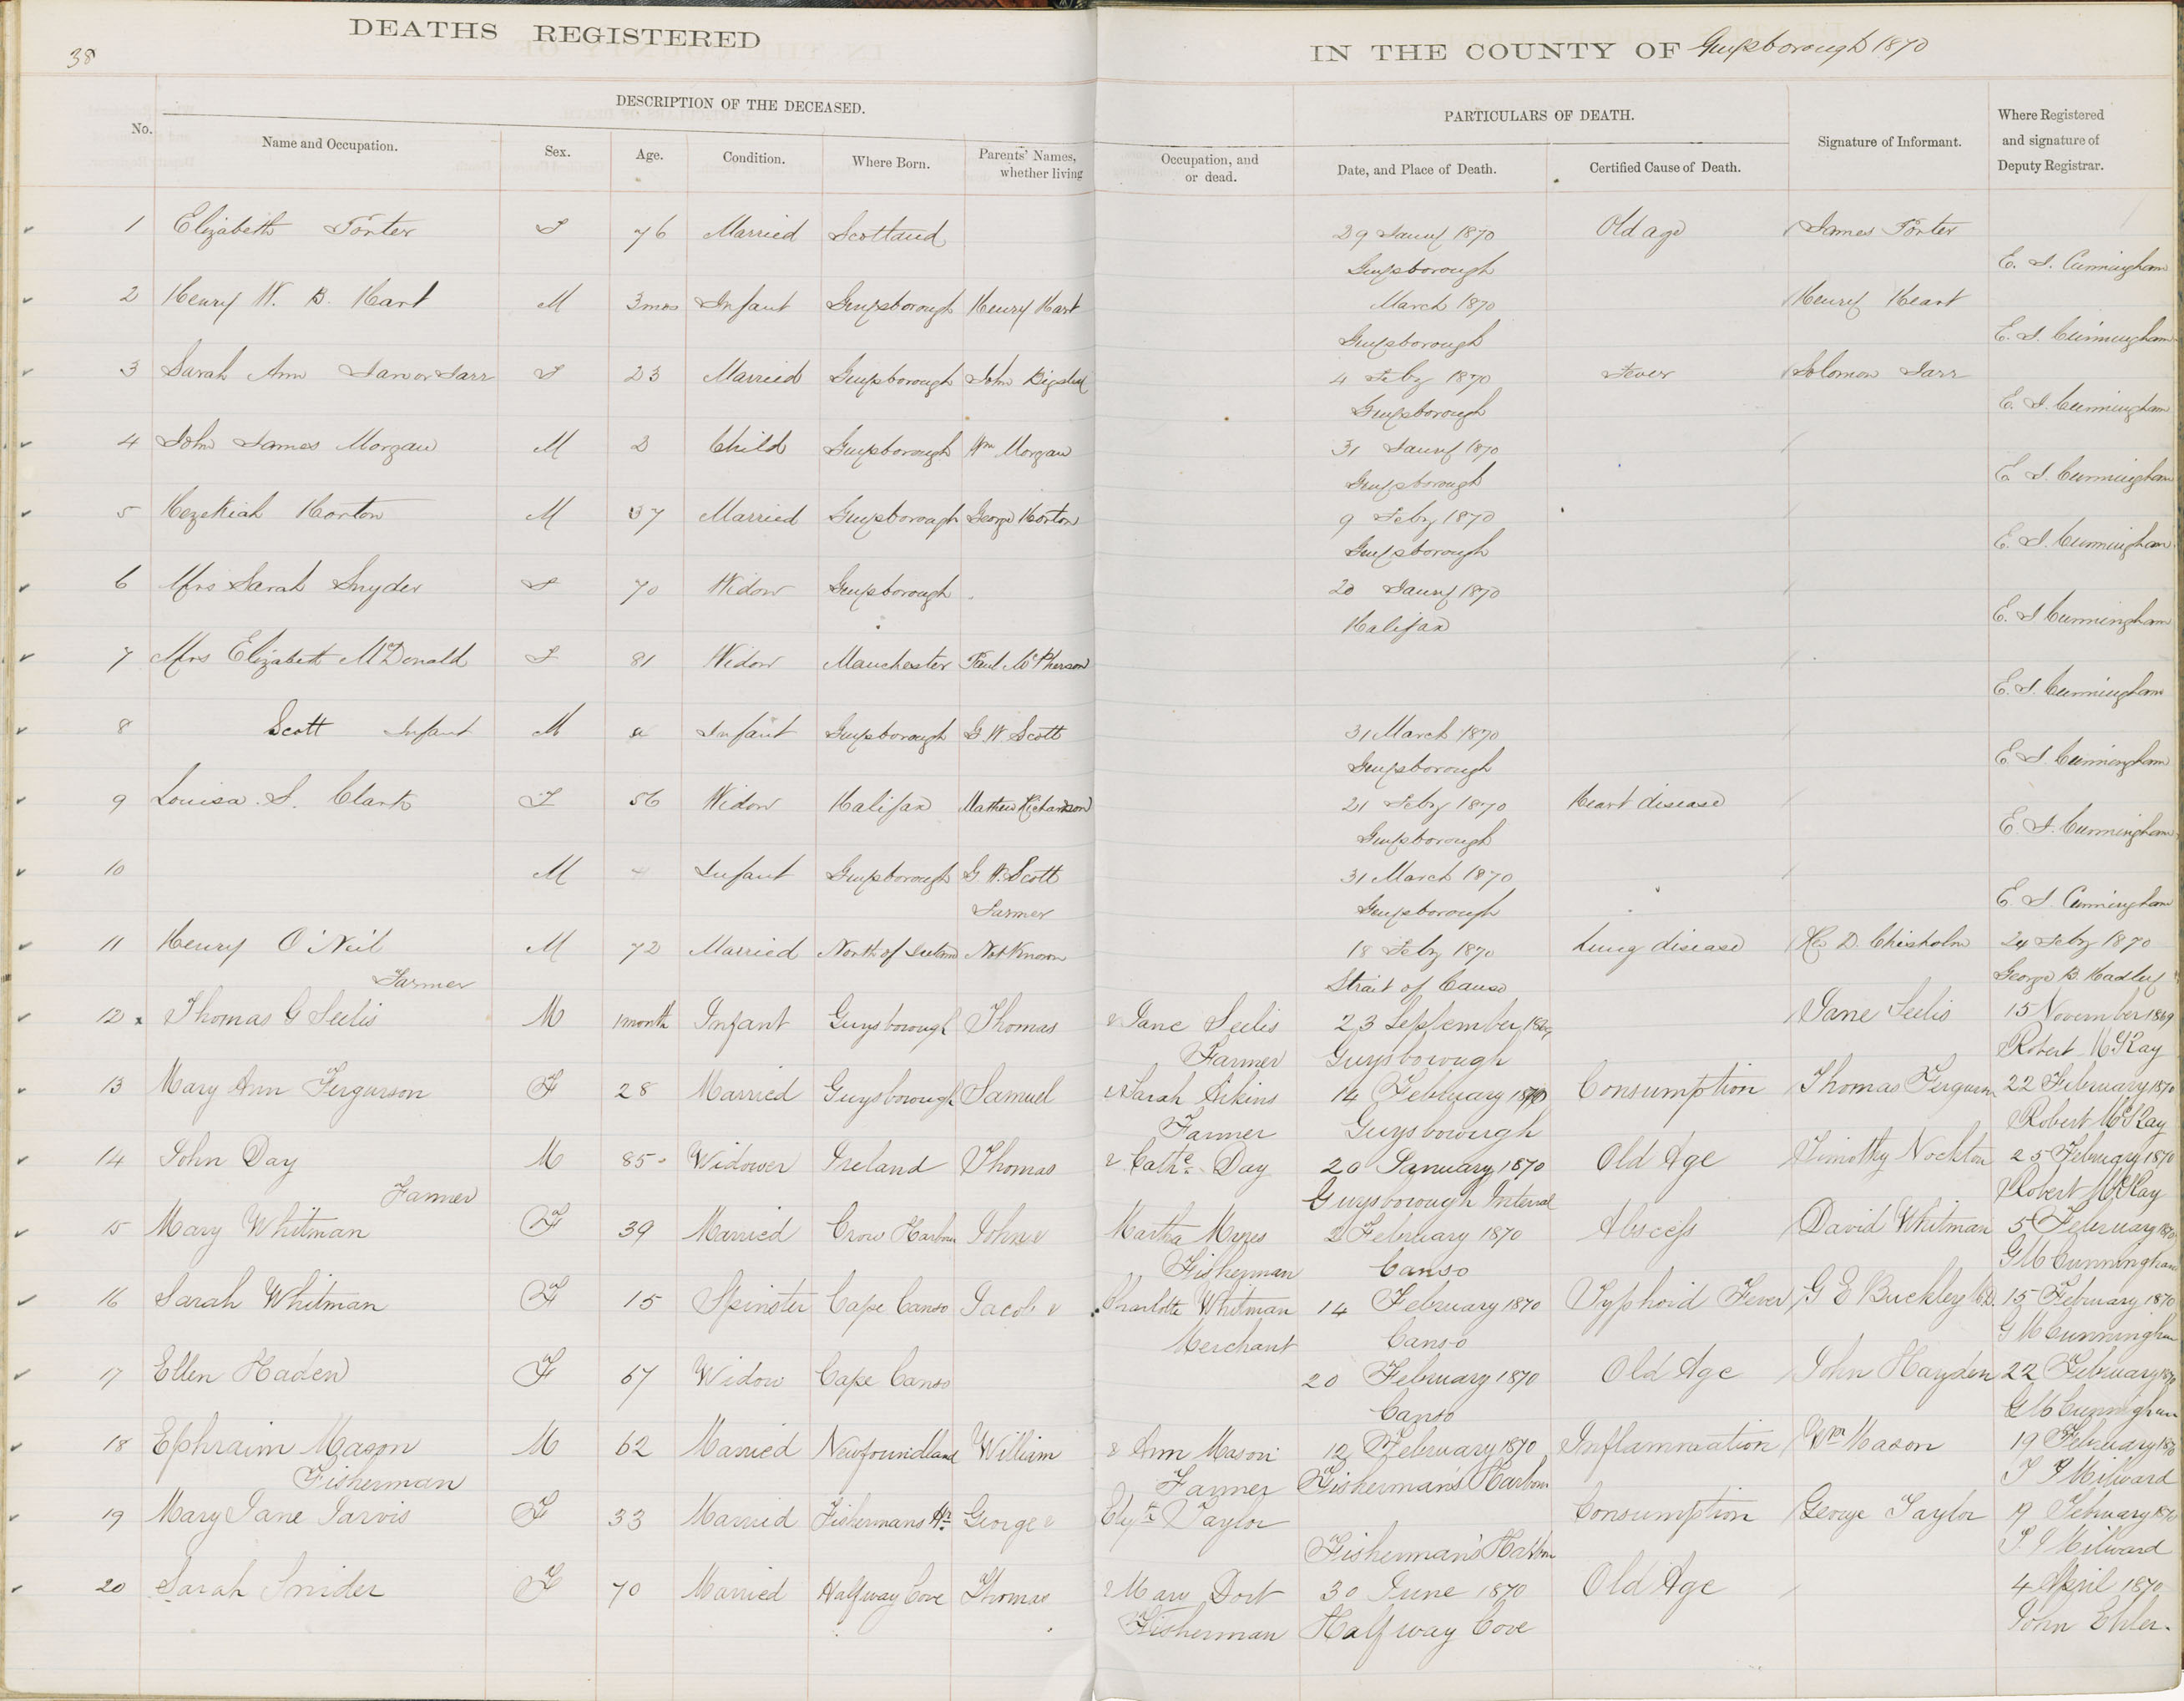 38
DEATHS REGISTERED IN THE COUNTY OF Guysborough 1870
DESCRIPTION OF THE DECEASED. PARTICULARS OF DEATH.
No. Name and Occupation. Sex. Age. Condition. Where Born. Parents' Names, whether living Occupation, and or dead. Date, and Place of Death. Certified Cause of Death. Signature of Informant. Where Registered and signature of Deputy Registrar.
1 Elizabeth Porter F 76 Married Scotland 29 Jany 1870 Old age James Porter
Guysborough E. J. Cunningham
2 Henry W. B. Hart M 3mos Infant Guysborough Henry Hart March 1870 Henry Heart
Guysborough E. J. Cunningham
3 Sarah Ann Jarvor Jarr F 23 Married Guysborough John 4 Feby 1870 Fever Solomon Jarr
Guysborough E. J. Cunningham
4 John James Morgan M 2 Child Guysborough Wm Morgan 31 Jany 1870
Guysborough E. J. Cunningham
5 Hezekiah Horton M 37 Married Guysborough George Horton 9 Feby 1870
Guysborough E. J. Cunningham
6 Mrs Sarah Snyder F 70 Widow Guysborough 20 Jany 1870
Halifax E. J. Cunningham
7 Mrs Elizabeth McDonald F 81 Widow Manchester Paul McPherson
E. J. Cunningham
8 Scott Infant M Infant Guysborough G W Scott 31 March 1870
Guysborough E. J. Cunningham
9 Louisa. S. Clark F 56 Widow Halifax Mathew Richardson 21 Feby 1870 Heart disease
Guysborough E. J. Cunningham
10 M Infant Guysborough G. W. Scott 31 March 1870
Farmer Guysborough E. J. Cunningham
11 Henry O'Neil M 72 Married North of Ireland Not Known 18 Feby 1870 Lung disease D. Chisholm 24 Feby 1870
Farmer Strait of Canso George B. Hadley
12 x Thomas G Seelis M 1month Infant Guysborough Thomas & Jane Seelis 23 September 1869 Jane Seelis 15 November 1869
Farmer Guysborough Robert McKay
13 Mary Ann Fergurson F 28 Married Guysborough Samuel & Sarah Aikins 14 February 1870 Consumption Thomas Ferguson 22 February 1870
Farmer Guysborough Robert McKay
14 John Day M 85 Widower Ireland Thomas & Cathe Day 20 January 1870 Old Age Timothy Nockton 25 February 1870
Farmer Guysborough Interval Robert McKay
15 Mary Whitman F 39 Married Crow Harbour John & Martha Myres 2 February 1870 Abscess David Whitman 5 February 1870
Fisherman Canso G M Cunningham
16 Sarah Whitman F 15 Spinster Cape Canso Jacob & Charlotte Whitman 14 February 1870 Typhoid Fever G E Buckley M.D. 15 February 1870
Merchant Canso G M Cunningham
17 Ellen Haden F 67 Widow Cape Canso 20 February 1870 Old Age John Hayden 22 February 1870
Canso G M Cunningham
18 Ephraim Mason M 62 Married Newfoundland William & Ann Mason 12 February 1870 Inflammation Wm Mason 19 February 1870
Fisherman Farmer Fisherman's Harbour Milward
19 Mary Jane Jarvis F 33 Married Fishermans Hr. George & Elizth Taylor Consumption George Taylor 19 February 1870
Fisherman's Harbour Milward
20 Sarah Snider F 70 Married Halfway Cove Thomas & Mary Dort 30 June 1870 Old Age 4 April 1870
Fisherman Half way Cove John Ehler.